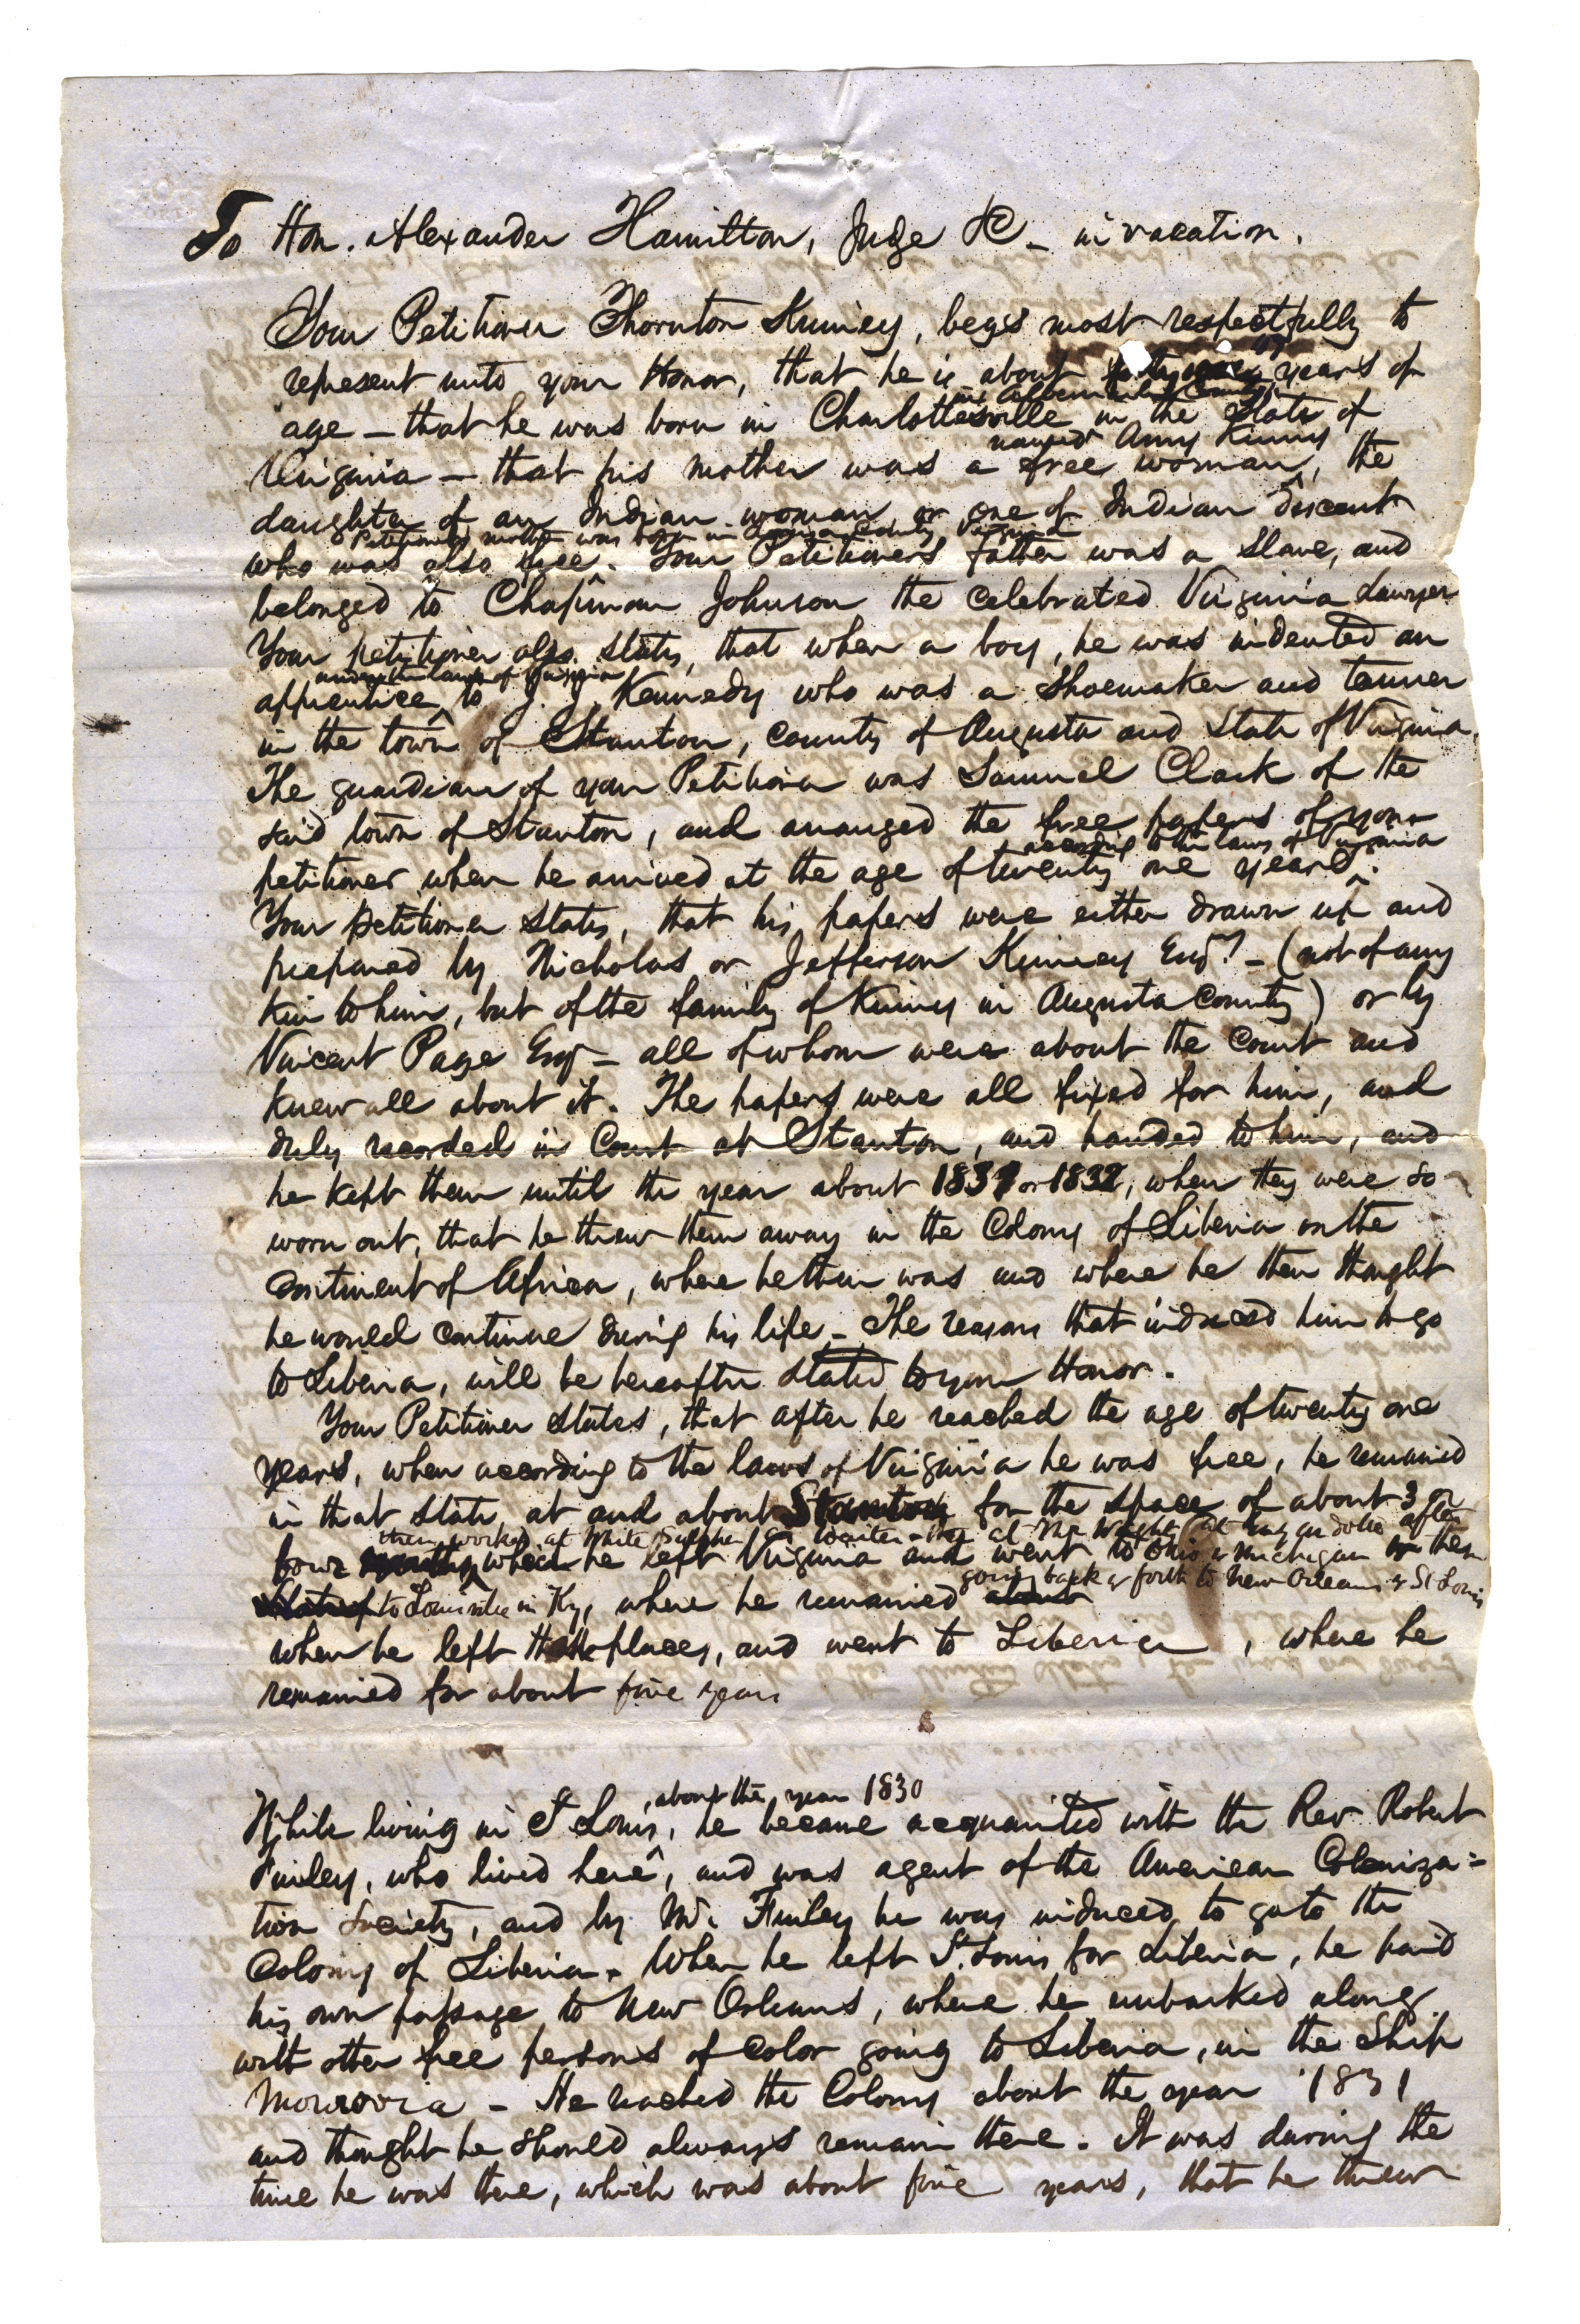 To Hon. Alexander Hamilton, Judge &C - in vacation.
Your Petitioner Thornton Kinney, begs most respectfully to
represent unto your Honor, that he is about years of
in Albemarle County
age — that he was born in Charlottesville in the State of
named Amy Kinny
Virginia — that his mother was a free woman, the
daughter of an Indian woman or one of Indian discent
Petitioners mother was born in County Virginia
who was also free. Your Petitioners father was a slave, and
belonged to Chapman Johnson the celebrated Virginia Lawyer
Your petitioner also states, that when a boy, he was indented an
under the laws of Virginia
apprentice to J. J. Kennedy who was a Shoemaker and tanner
in the town of Stanton, county of Augusta and State of Virginia.
The guardian of your Petitioner was Samuel Clark of the
said town of Stanton, and arranged the free papers of your
according to the laws of Virginia
petitioner when he arrived at the age of twenty one years.
Your petitioner states, that his papers were either drawn up and
prepared by Nicholas or Jefferson Kinney Esqr. - (not of any
kin to him, but of the family of Kinney in Augusta County) or by
Vincent Page Esq - all of whom were about the Court and
knew all about it. The papers were all fixed for him, and
duly recorded in Court at Stanton, and handed to him, and
he kept them until the year about 1831 or 1832, when they were so
worn out, that he threw them away in the Colony of Liberia on the
Continent of Africa, where he then was and where he then thought
he would continue during his life - The reasons that induced him to go
to Liberia, will be hereafter stated to your Honor.
Your Petitioner states, that after he reached the age of twenty one
years, when according to the laws of Virginia he was free, he remained
in that state at and about Stanton for the space of about 3 or
then worked at White Sulpher as Waiter - at Mr Wright at after
four when he left Virginia and went to Ohio & Michigan then
going back & forth to New Orleans & St Louis
to Louisville in Ky, where he remained
when he left places, and went to Liberia, where he
remained for about five years
about the year 1830
While living in St Louis, he became acquainted with the Rev Robert
Finley, who lived here, and was agent of the American Coloniza=
tion Society, and by Mr. Finley he was induced to go to the
Colony of Liberia. When he left St. Louis for Liberia, he paid
his own passage to New Orleans, where he embarked along
with other free persons of color going to Liberia, in the Ship
Monrovia - He reached the Colony about the year 1831
and thought he should always remain there. It was during the
time he was there, which was about five years, that he threw